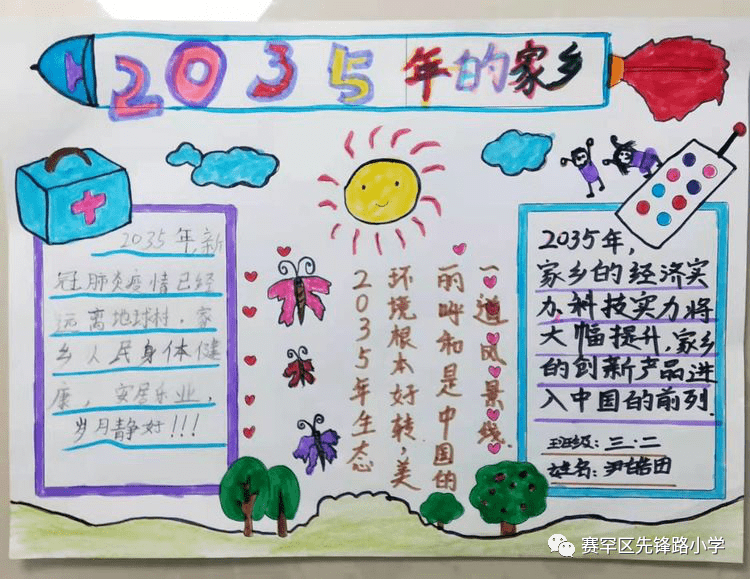 2035年的家乡
2035年,新
冠肺炎疫情已经
远离地球村,家
乡人民身体健
康,安居乐业,
岁月静好!!!
2035年生态
环境根本好转,美
丽呼和是中国的
一道风景线
2035年,
家乡的经济实
力,科技实力将
大幅提升,家乡
的创新产品进
入中国的前列.
班级:三.二
姓名:尹皓
赛罕区先锋路小学